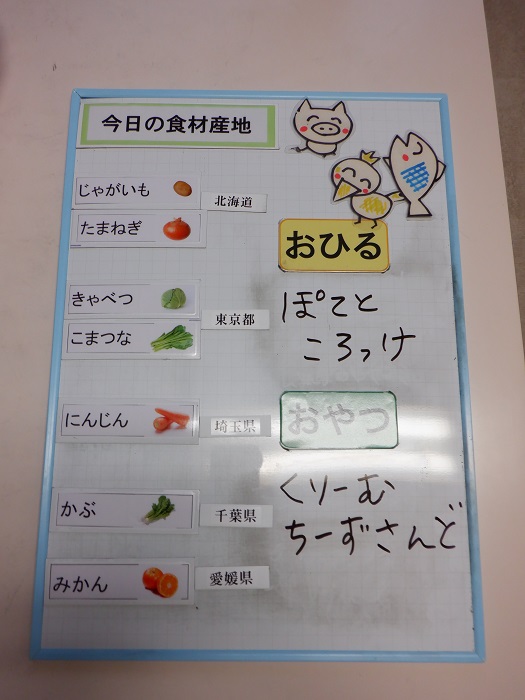 今日の食材産地
じゃがいも
北海道
たまねぎ
きゃべつ
東京都
こまつな
にんじん
埼玉県
かぶ
千葉県
みかん
愛媛県
おひる
ぽてと
ころっけ
おやつ
くりーむ
ちーずさんど